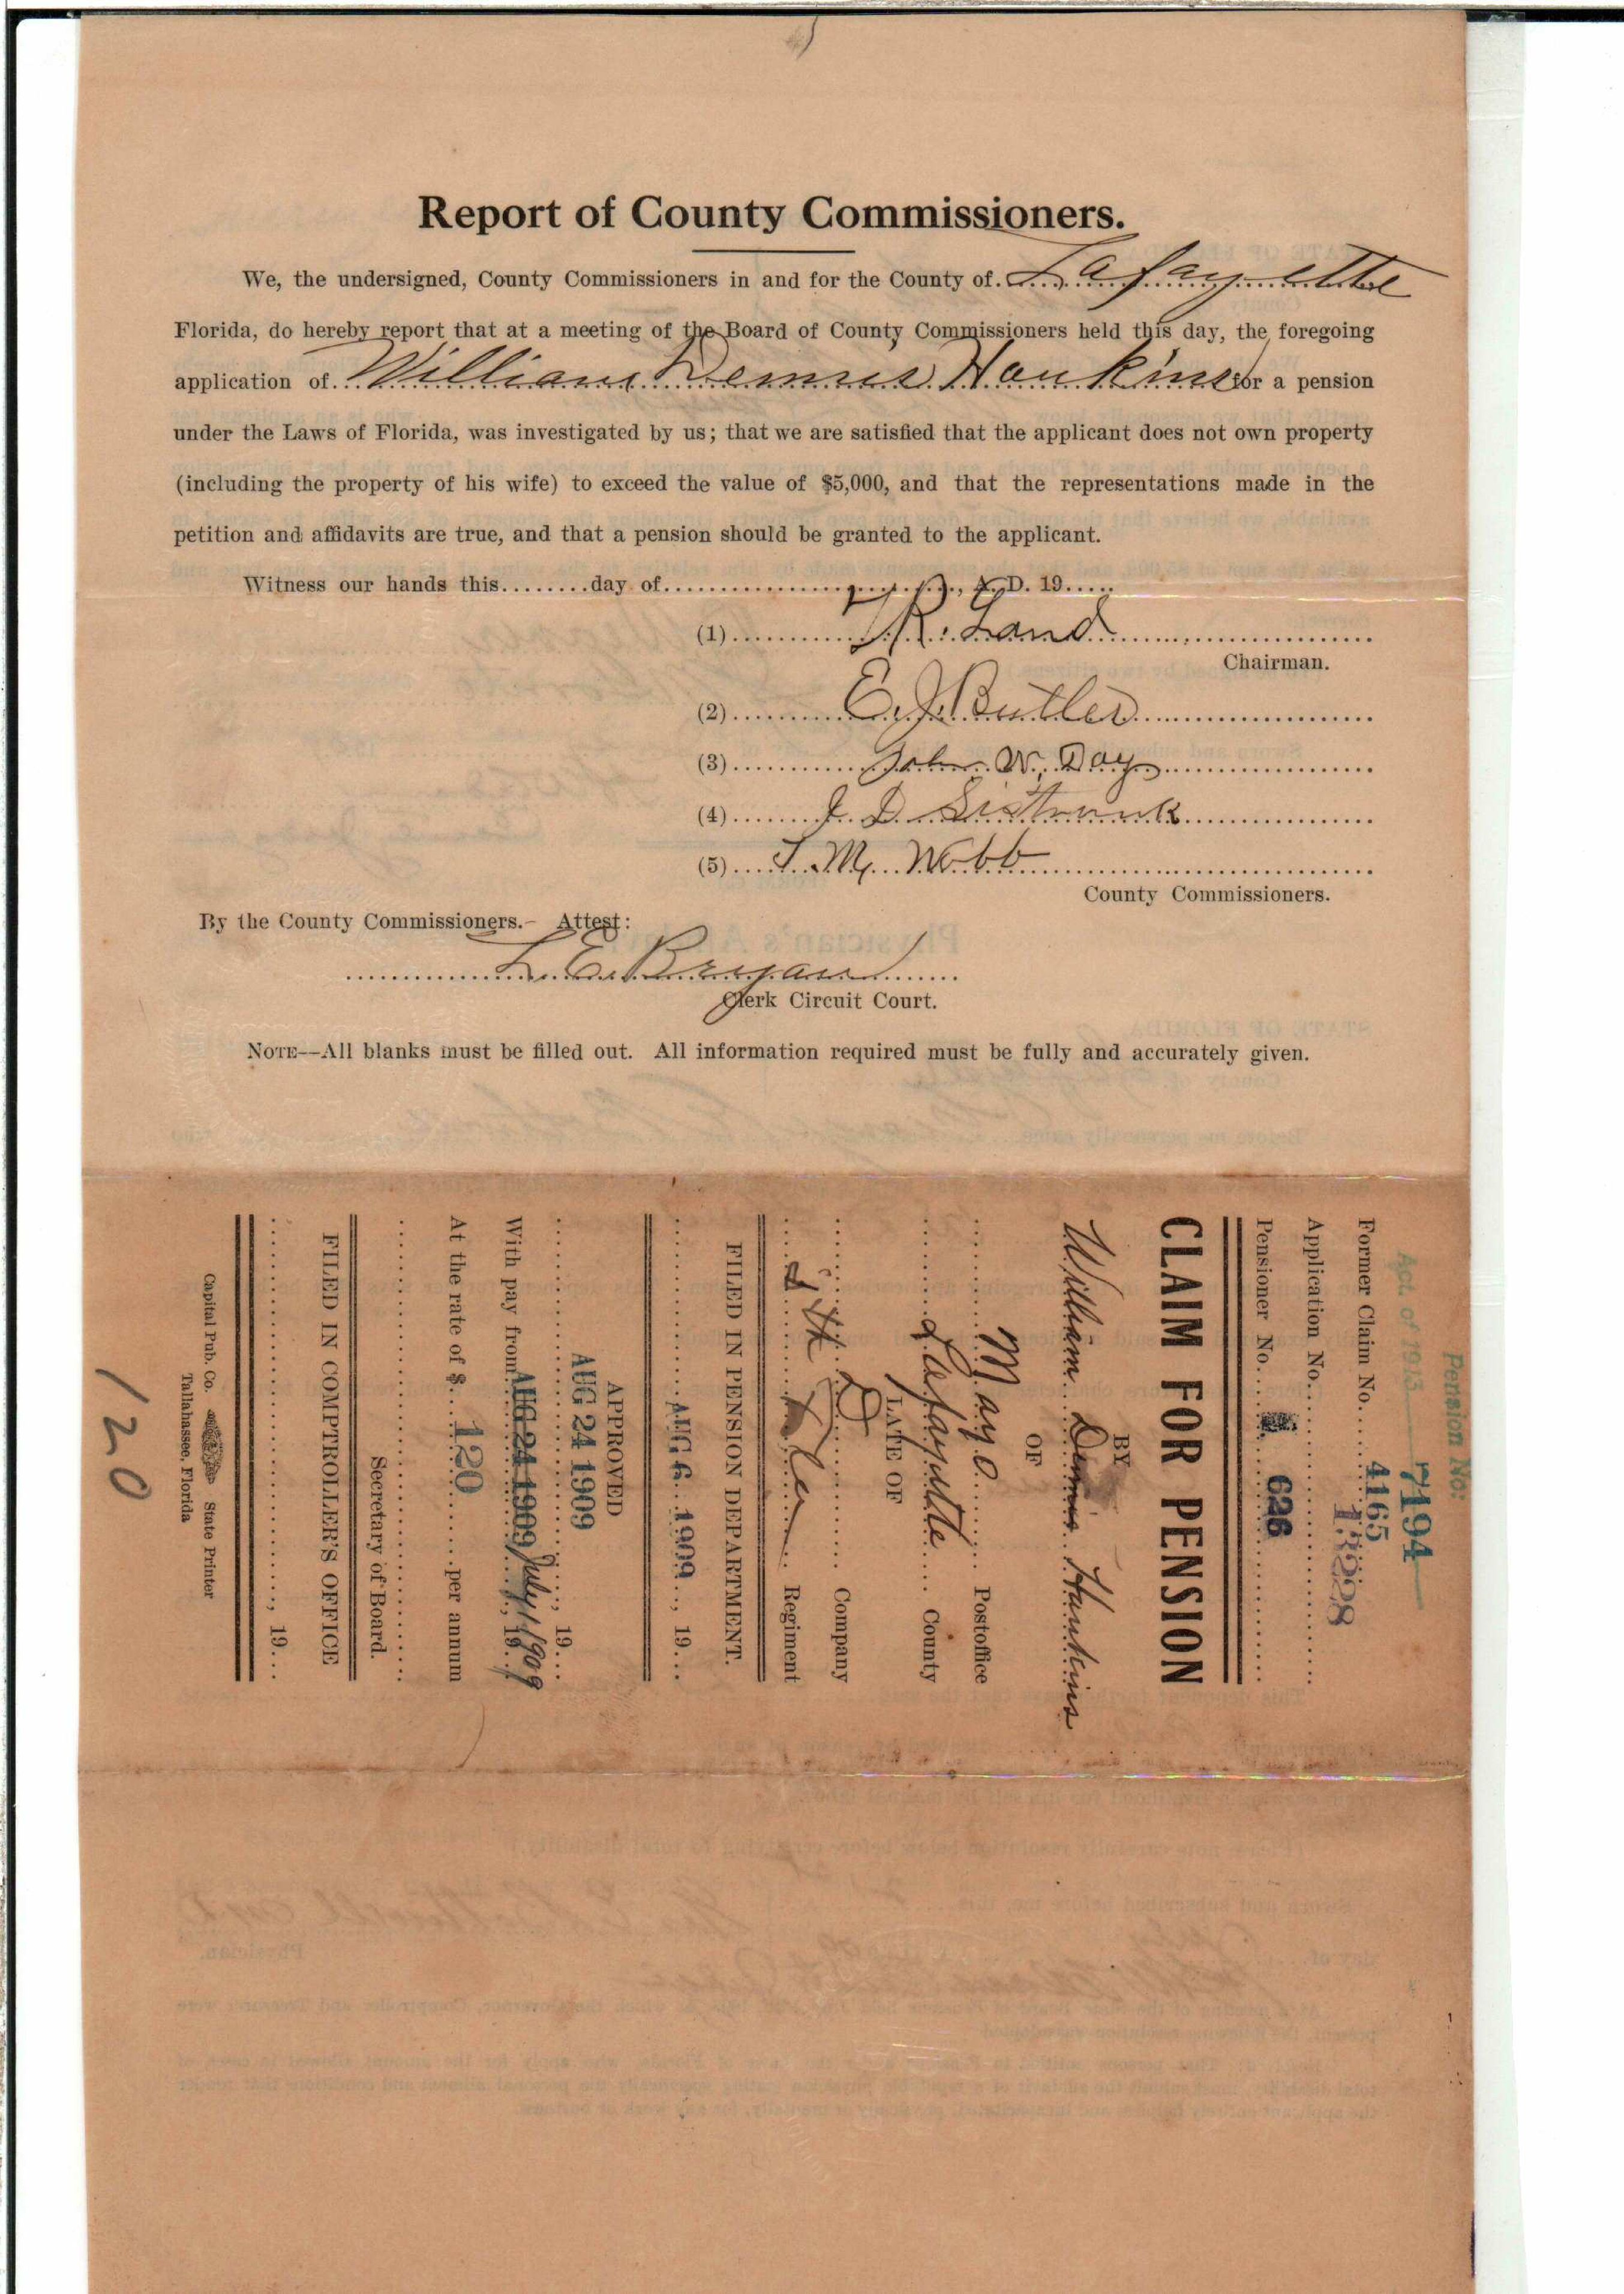 Report of County Commissioners.
We, the undersigned, County Commissioners in and for the County of Lafayette
Florida, do hereby report that at a meeting of the Board of County Commissioners held this day, the foregoing
application of William Dennis Hankins for a pension
under the Laws of Florida, was investigated by us; that we are satisfied that the applicant does not own property
(including the property of his wife) to exceed the value of $5,000, and that the representations made in the
petition and affidavits are true, and that a pension should be granted to the applicant.
Witness our hands this........day of............................, A. D. 19.....
(1) R. Land
Chairman.
(2) E. J. Butler
(3) John W. Day
(4) J. D. Sistrunk
(5) T. M. Webb
County Commissioners.
By the County Commissioners.— Attest:
L. E. Bryan
Clerk Circuit Court.
NOTE—All blanks must be filled out. All information required must be fully and accurately given.
Pension No:
Act. of 1913 7194
Former Claim No. 4165
13228
Application No.
Pensioner No. 626
CLAIM FOR PENSION
BY
William Dennis Hankins
OF
Mayo Postoffice
Lafayette County
LATE OF
D Company
9th Fla Regiment
FILED IN PENSION DEPARTMENT.
AUG 6 1909, 19...
APPROVED
AUG 24 1909
, 19...
With pay from AUG 24 1909 July 1 1909, 19
At the rate of $ 120 per annum
Secretary of Board.
FILED IN COMPTROLLER'S OFFICE
, 19...
Capital Pub. Co. State Printer
Tallahassee, Florida
120